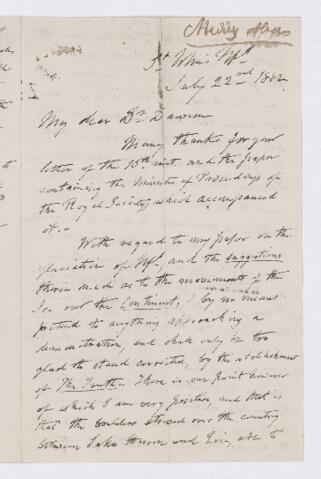 St Johns Nfd
July 22nd 1882
My dear Dr Dawson
Many thanks for your
letter of the 15th inst. and the paper
containing the Minutes of Proceedings of
the Royal Society which accompanied
it.
With regard to my paper on the
glaciation of Nfd and the suggestions
therein made as to the movements of the
Ice over the Continent, I by no means
pretend to anything approaching a
demonstration, and shall only be too
glad to stand corrected, by the establishment
of The Truth. There is one point however
of which I am very positive, and that is
that the boulders strewed over the country
between Lakes Huron and Erie, are